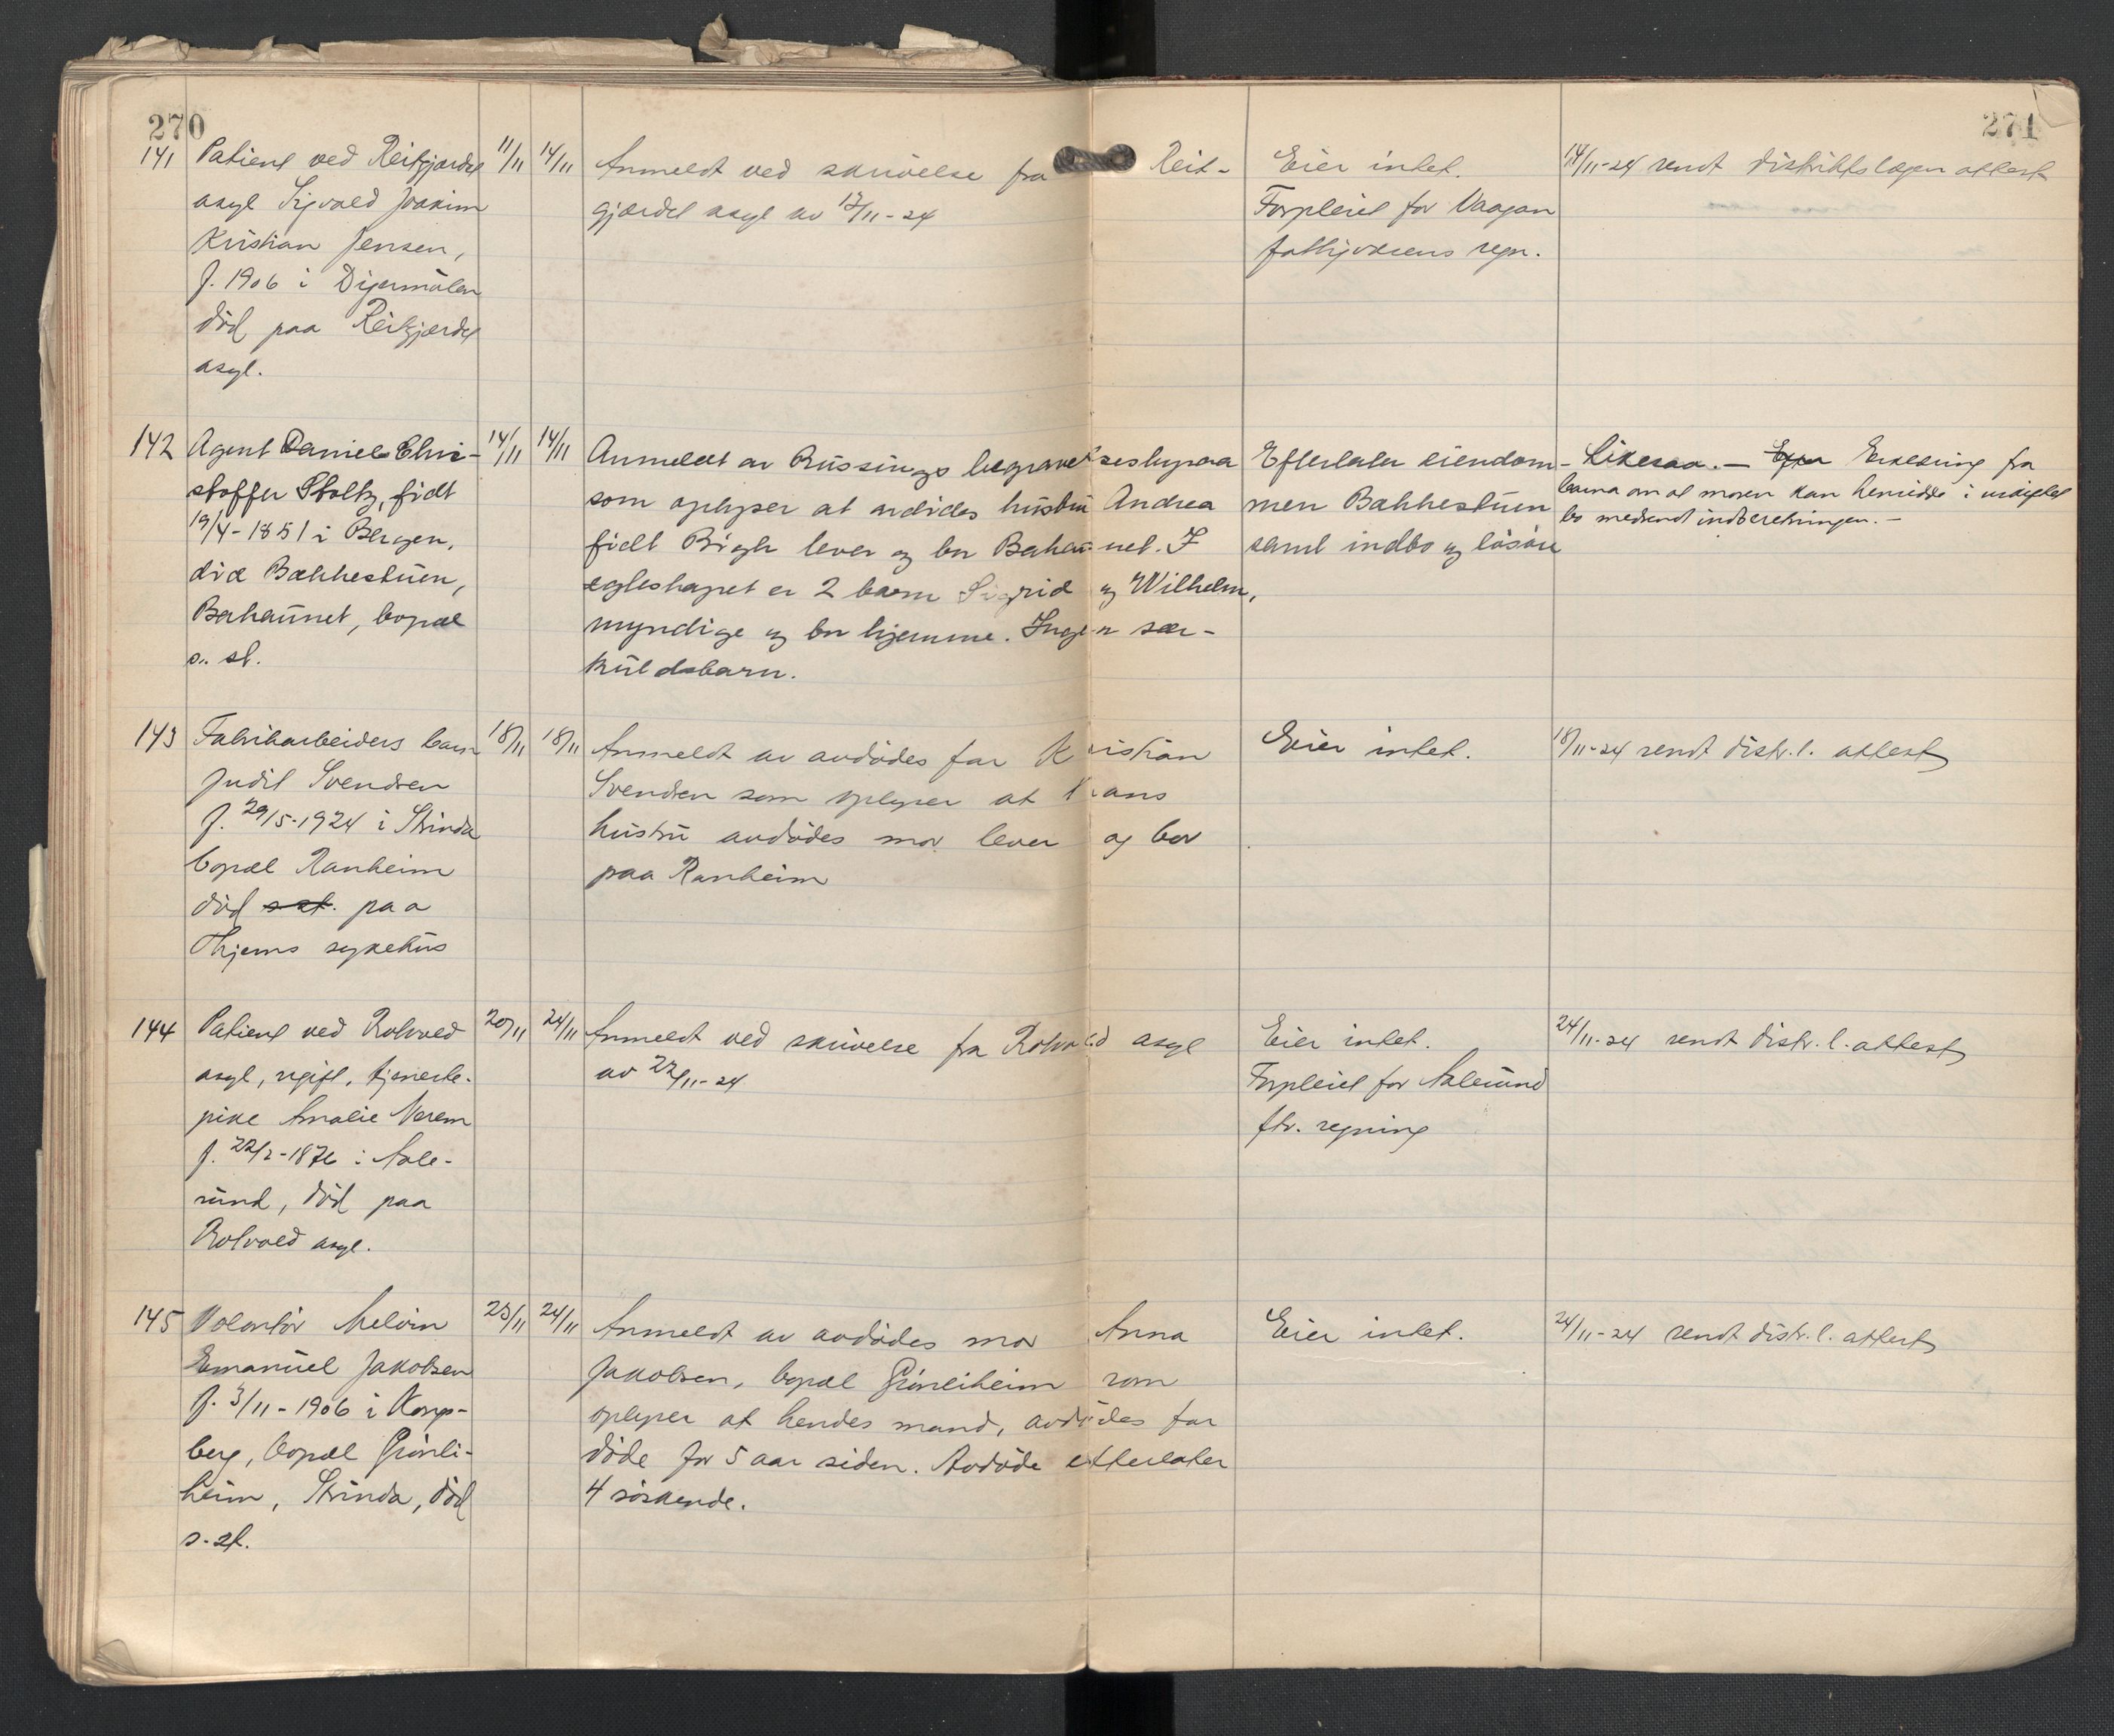 270
271
141 Patient ved Reitgjærdet
asyl Sigvald Joakim
Kristian Jensen,
f. 1906 i Digermulen
død paa Reitgjærdet
asyl.
11/11
14/11
Anmeldt ved skrivelse fra Reit-
gjærdet asyl av 12/11-24
Eier intet.
Forpleiet for Vaagan
fattigvæsens regn.
14/11-24 sendt distriktslægen attest
142 Agent Daniel Chri-
stoffer Stoltz, født
19/4-1851 i Bergen,
død Bakkestuen,
Bakaunet, bopæl
s. st.
14/11
14/11
Anmeldt av Russings begravelsesbyraa
som oplyser at avdødes hustru Andrea
født Brigh lever og bor Bakaunet. I
egteskapet er 2 barn Sigrid og Wilhelm,
myndige og bor hjemme. Ingen sær-
kuldsbarn.
Efterlater eiendom-
men Bakkestuen
samt indbo og løsøre
Likesaa. – Erklæring fra
barna om at moren kan hensidde i uskiftet
bo medsendt indberetningen. –
143 Fabrikarbeiders barn
Judit Svendsen
f. 29/5-1924 i Strinda
bopæl Ranheim
død s. st. paa
Thjems sykehus
18/11
18/11
Anmeldt av avdødes far Kristian
Svendsen som oplyser at hans
hustru avdødes mor lever og bor
paa Ranheim
Eier intet.
18/11-24 sendt distr. l. attest
144 Patient ved Rotvold
asyl, ugift, tjeneste-
pike Amalie Verem
f. 22/2-1876 i Aale-
sund, død paa
Rotvold asyl.
20/11
24/11
Anmeldt ved skrivelse fra Rotvold asyl
av 22/11-24
Eier intet.
Forpleiet for Aalesund
ftv. regning
24/11-24 sendt distr. l. attest
145 Volontør Melvin
Emanuel Jakobsen
f. 3/11-1906 i Kongs-
berg, bopæl Grønli-
heim, Strinda, død
s. st.
23/11
24/11
Anmeldt av avdødes mor Anna
Jakobsen, bopæl Grønliheim som
oplyser at hendes mand, avdødes far
døde for 5 aar siden. Avdøde efterlater
4 søskende.
Eier intet.
24/11-24 sendt distr. l. attest